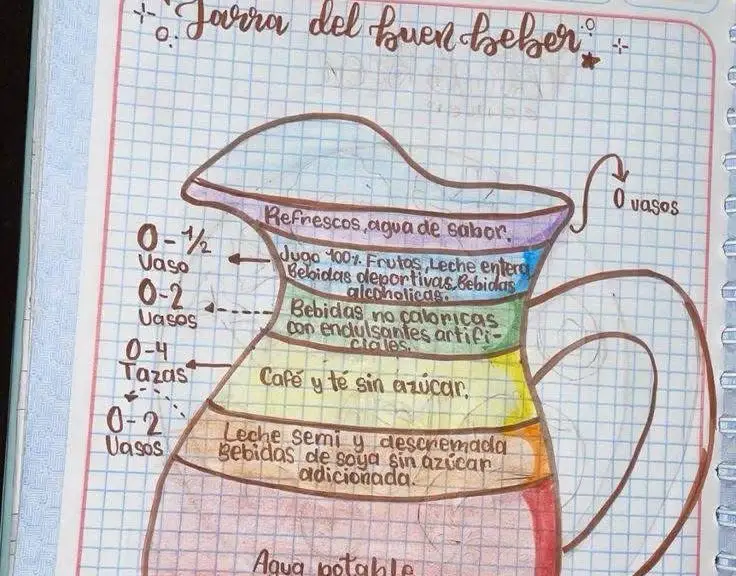 Jarra del buen beber
0 vasos
Refrescos, agua de sabor.
0-1/2
Vaso
Jugo 100% Frutas, Leche entera,
Bebidas deportivas, Bebidas
alcoholicas.
0-2
Vasos
Bebidas no caloricas
con endulsantes artifi-
ciales.
0-4
Tazas
Café y té sin azúcar.
0-2
Vasos
Leche semi y descremada
Bebidas de soya sin azúcar
adicionada.
Agua potable